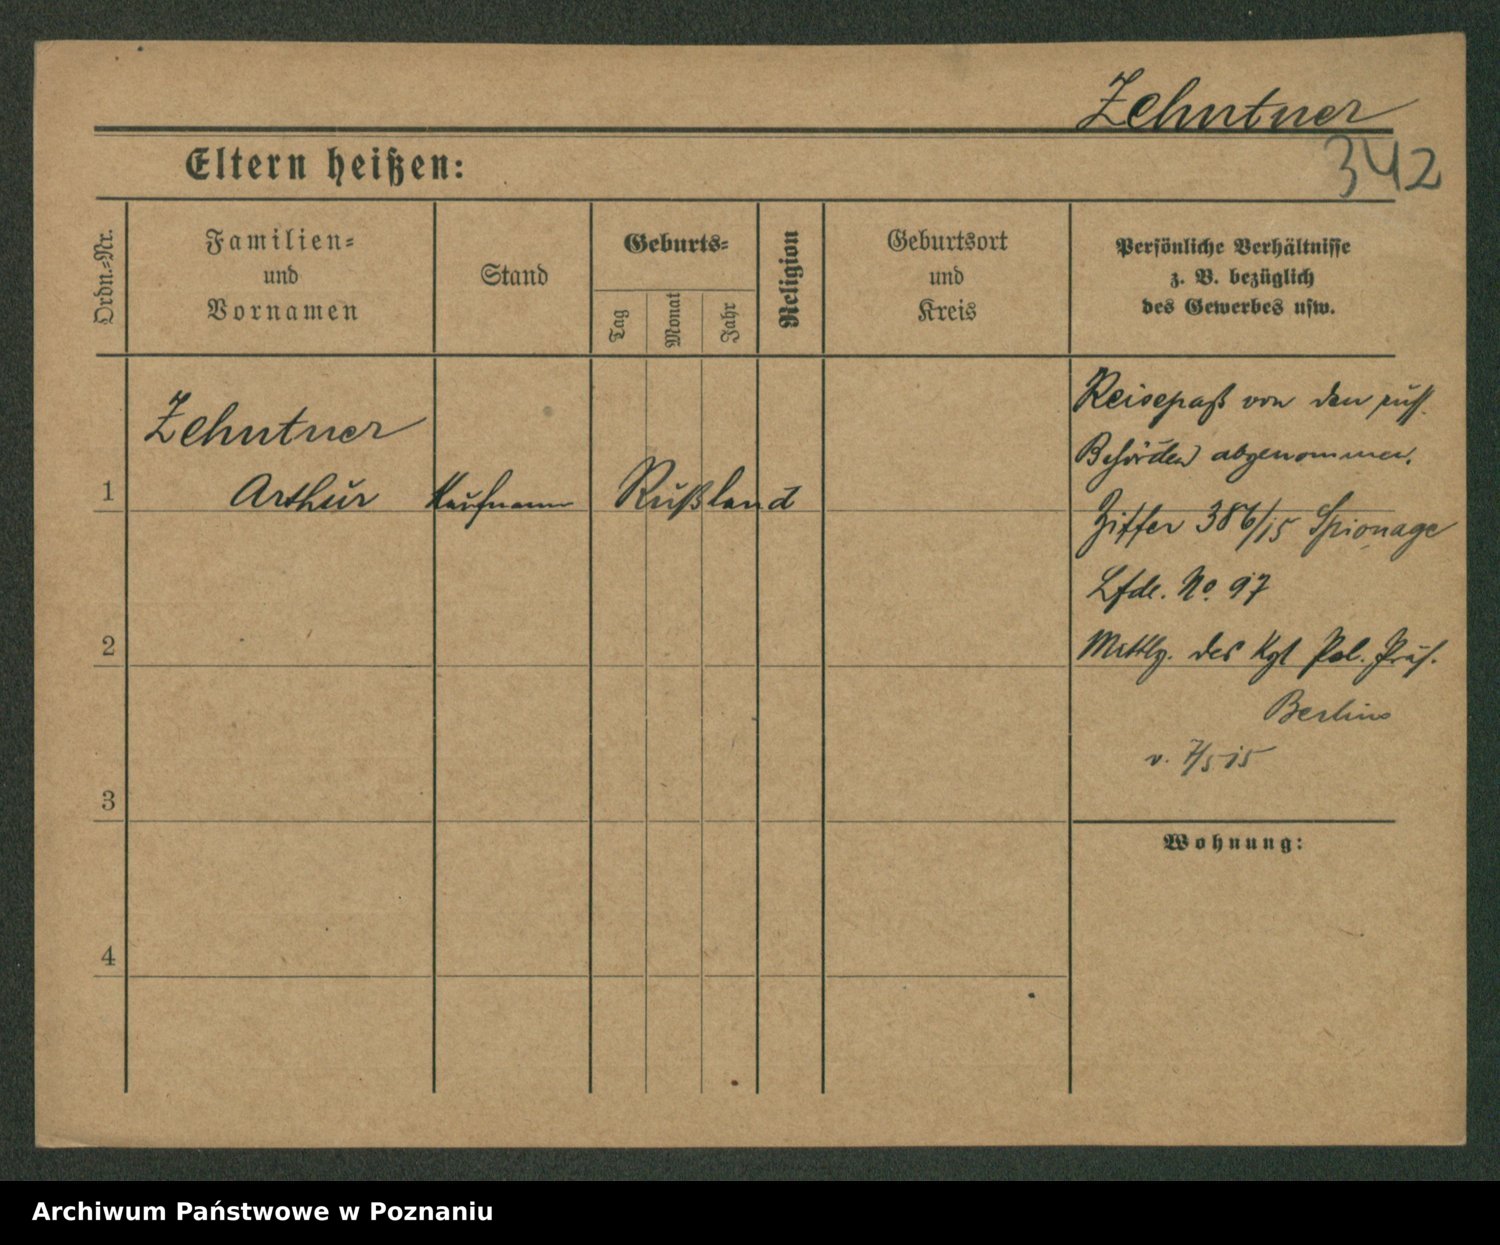 Zehntner
342
Eltern heißen:
Ordn.=Nr.
Familien=
und
Vornamen
Stand
Geburts=
Tag
Monat
Jahr
Religion
Geburtsort
und
Kreis
Persönliche Verhältnisse
z. B. bezüglich
des Gewerbes usw.
Zehntner
1 Arthur Kaufmann Rußland
Reisepaß von den russ.
Behörden abgenommen.
Ziffer 386/15 Spionage
Lfde. No. 97
Mittlg. des Kgl Pol. Präs.
Berlin
v. 7/5 15
2
3
Wohnung:
4
Archiwum Państwowe w Poznaniu